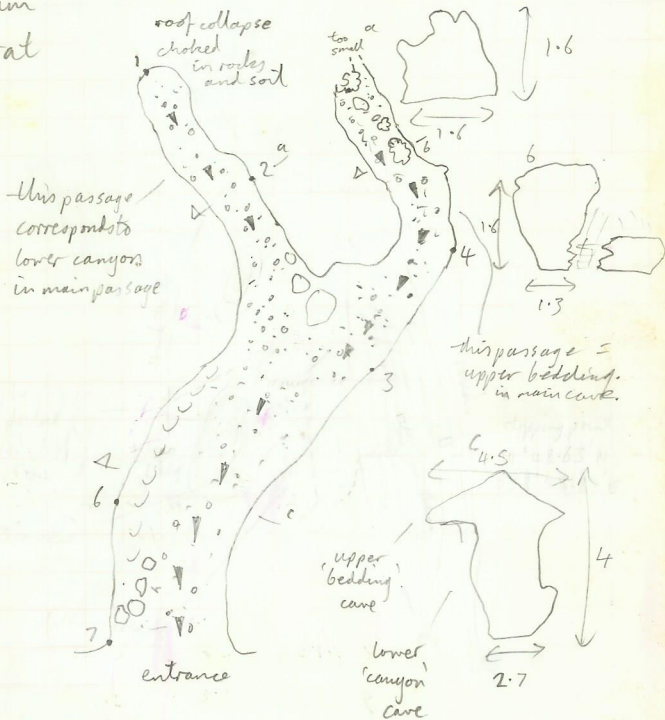 um
rat
roof collapse
choked
in rocks
and soil
too
small
a
1.6
1.6
1
2
a
6
6
this passage
corresponds to
lower canyon
in main passage
1.6
1.3
4
this passage =
upper bedding
in main cave.
3
c
4.5
4
6
c
upper
'bedding'
cave
7
entrance
lower
'canyon'
cave
2.7